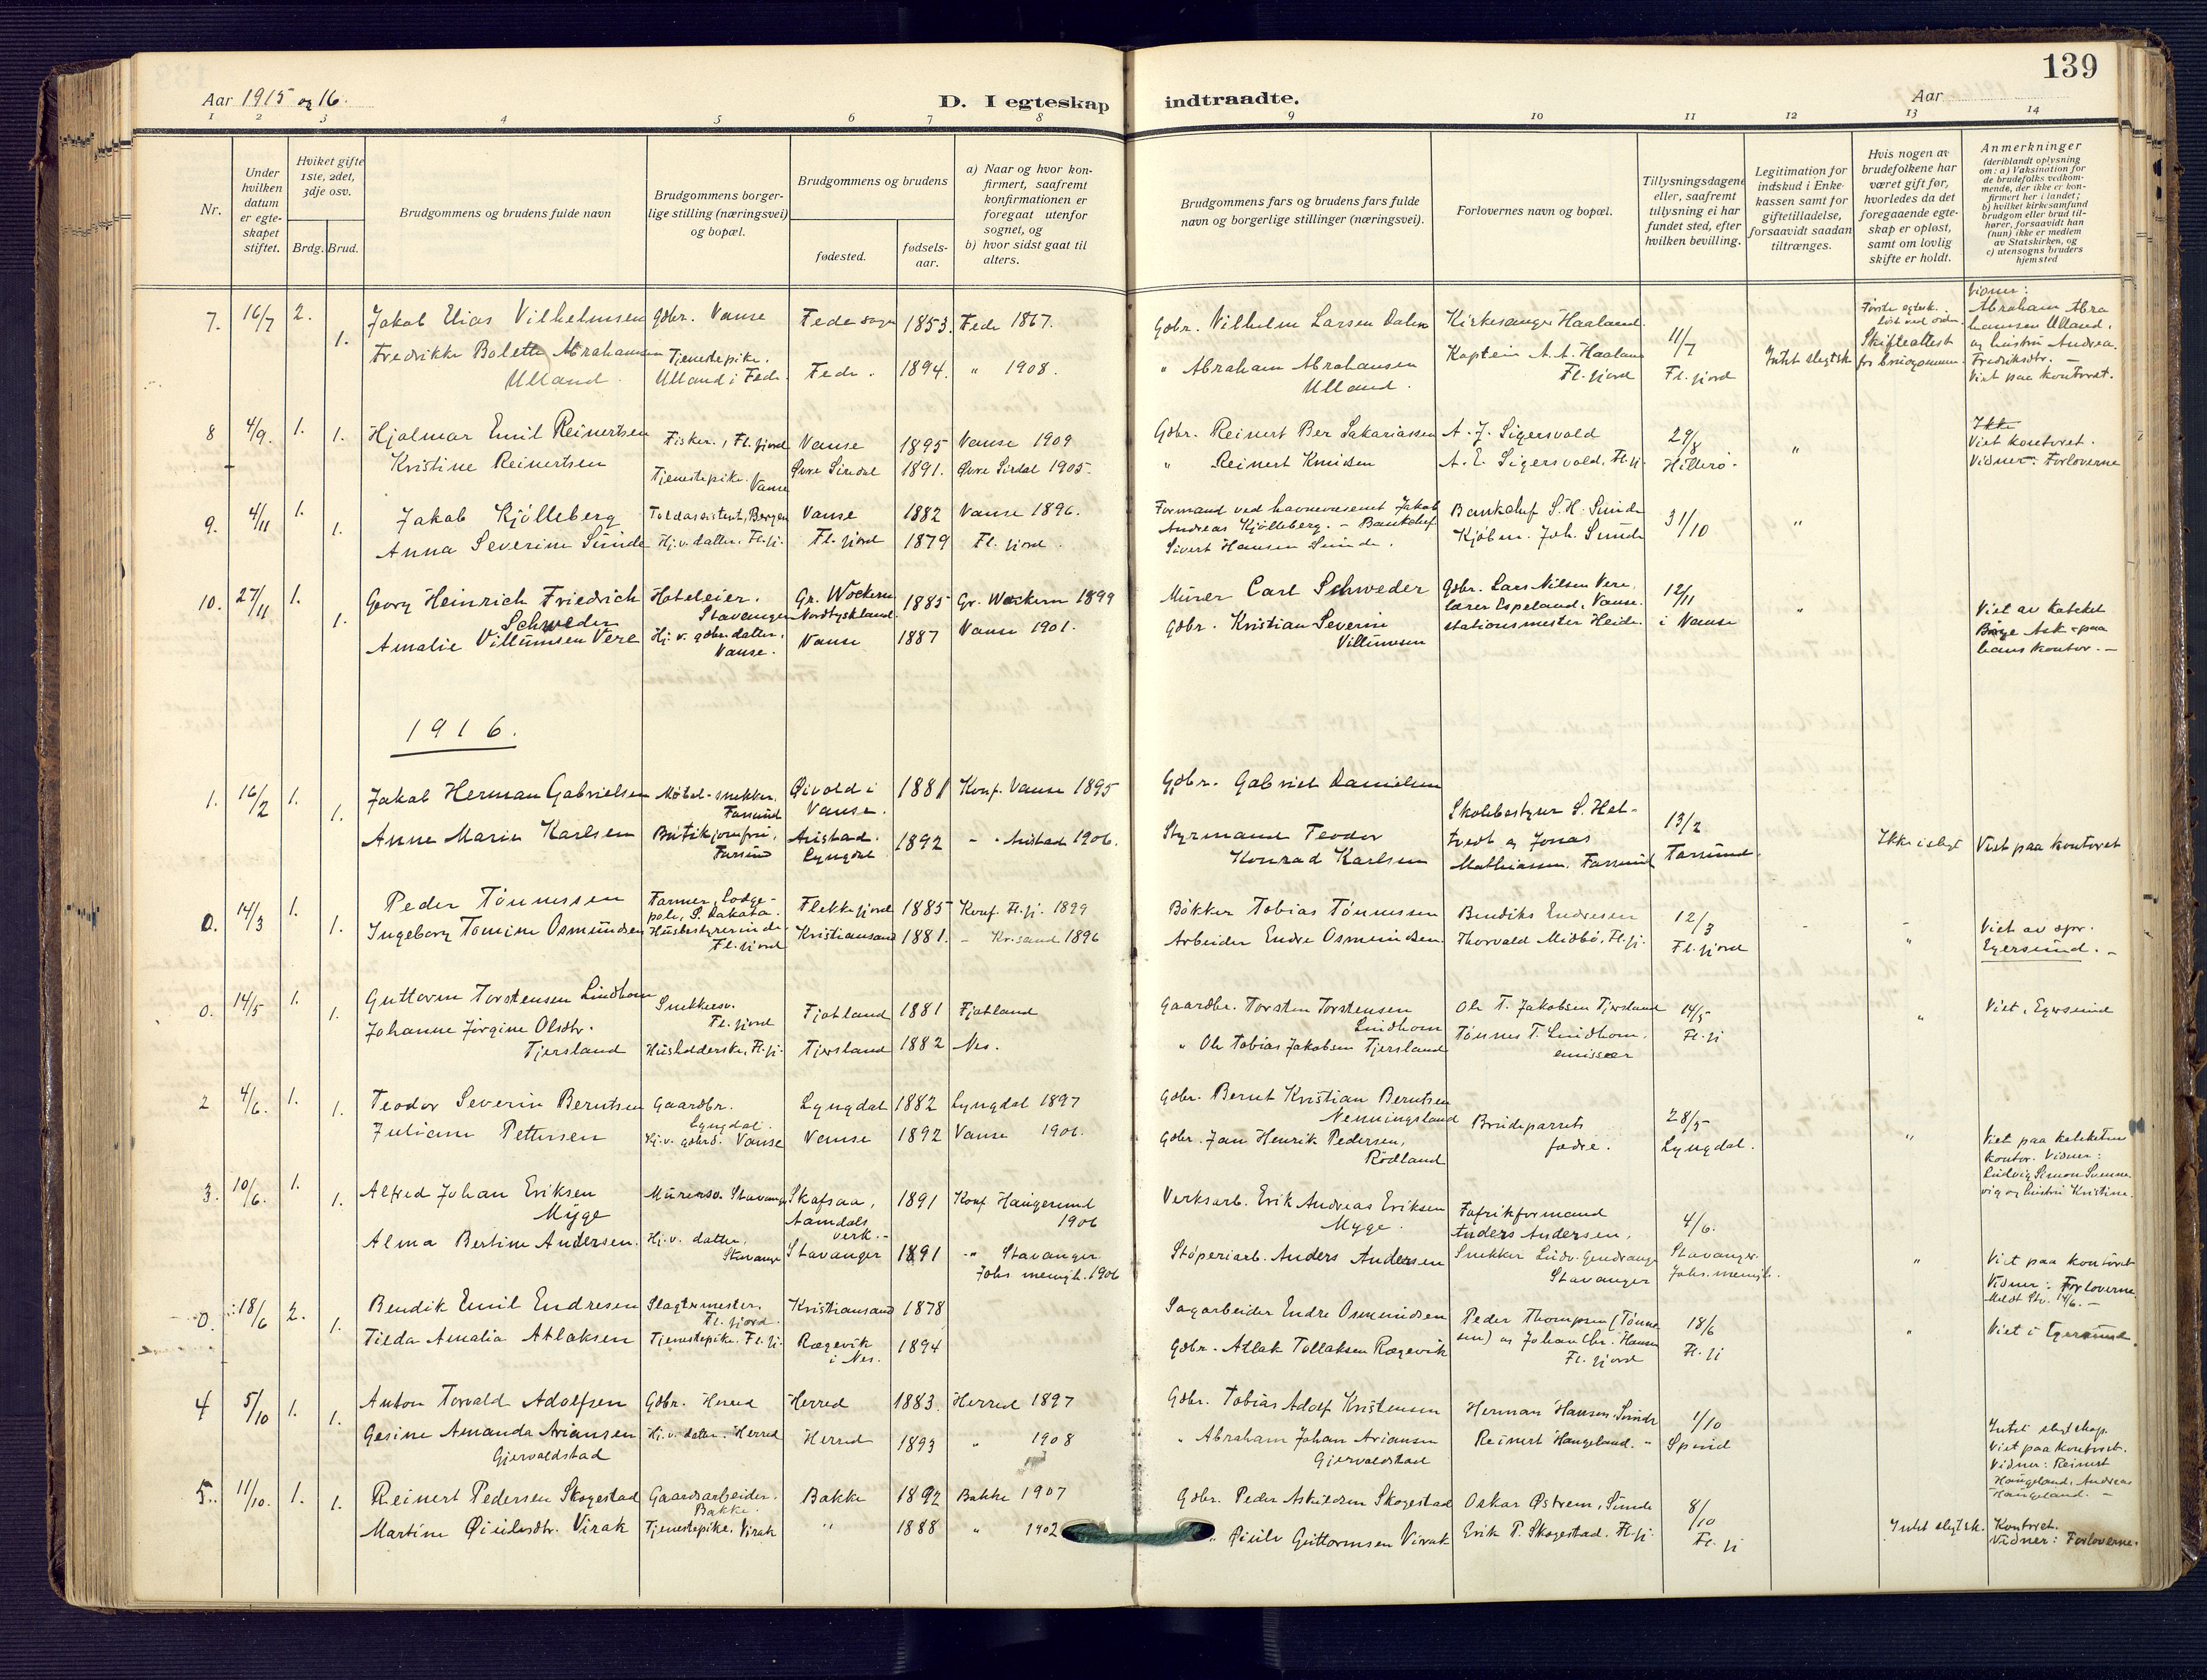 139
Aar 1915 og 16.
D. I egteskap indtraadte.
Aar
1 2 3 4 5 6 7 8 9 10 11 12 13 14
Nr.
Under hvilken datum er egte-skapet stiftet.
Hviket gifte 1ste, 2det, 3dje osv.
Brdg. Brud.
Brudgommens og brudens fulde navn
Brudgommens borger-lige stilling (næringsvei) og bopæl.
Brudgommens og brudens
fødested.
fødsels-aar.
a) Naar og hvor kon-firmert, saafremt konfirmationen er foregaat utenfor sognet, og
b) hvor sidst gaat til alters.
Brudgommens fars og brudens fars fulde navn og borgerlige stillinger (næringsvei).
Forlovernes navn og bopæl.
Tillysningsdagene eller, saafremt tillysning ei har fundet sted, efter hvilken bevilling.
Legitimation for indskud i Enke-kassen samt for giftetilladelse, forsaavidt saadan tiltrænges.
Hvis nogen av brudefolkene har været gift før, hvorledes da det foregaaende egte-skap er opløst, samt om lovlig skifte er holdt.
Anmerkninger
(deriblandt oplysning om: a) Vaksination for de brudefolks vedkom-mende, der ikke er kon-firmert her i landet; b) hvilket kirkesamfund brudgom eller brud til-hører, forsaavidt han (hun) ikke er medlem av Statskirken, og c) utensogns bruders hjemsted
7. 16/7 2. Jakob Elias Vilhelmsen Gdbr. Vanse Fede sogn 1853. Fede 1867. Gdbr. Vilhelm Larsen Dalen Kirkesanger Haaland. 11/7
1. Fredrikke Bolette Abrahamsen Ulland. Tjenestepike. Ulland i Fede. Fede. 1894. " 1908. " Abraham Abrahamsen Ulland. Kaptein A. A. Haaland Fl.fjord Fl.fjord Intet slegtsk.
Skifteattest for brudgommen
Vidner: Abraham Abrahamsen Ulland, og hustru Andrea Fredriksdtr. - Viet paa kontoret.
8 4/9. 1. Hjalmar Emil Reinertsen Fisker, Fl.fjord Vanse 1895 Vanse 1909 Gdbr. Reinert Ber Sakariassen A. J. Sigersvold 29/8
1. Kristine Reinertsen Tjenestepike. Vanse Øvre Sirdal 1891. Øvre Sirdal 1905. " Reinert Knudsen A. E. Sigersvold, Fl.fj. Hitterø. "
Viet kontoret. Vidner: Forloverne
9. 4/11 1. Jakob Kjølleberg Toldassistent, Bergen Vanse 1882 Vanse 1896. Formand ved havnevesenet Jakob Andreas Kjølleberg. - Bankchef S. H. Sunde 31/10
1. Anna Severine Sunde Hj.v. datter. Fl.fj. Fl.fjord 1879 Fl.fjord. Bankchef Sivert Hansen Sunde. Kjøbm. Joh. Sunde "
10. 27/11 1. Georg Heinrich Friedrich Schweder Hoteleier. Stavanger Gr. Wockern Nordtyskland. 1885 Gr. Wockern 1899 Murer Carl Schweder Gdbr. Lars Nilsen Vere, lærer Espeland, Vanse. 12/11
1. Amalie Villumsen Vere Hj.v. gdbr. datter, Vanse. Vanse 1887 Vanse 1901. Gdbr. Kristian Severin Villumsen stationsmester Heide. i Vanse "
Viet av kateket Børge Ask - paa hans kontor. -
1916.
1. 16/2 1. Jakob Herman Gabrielsen Møbel-snekker. Farsund Øivold i Vanse. 1881 Konf. Vanse 1895 Gdbr. Gabriel Danielsen
1. Anne Marie Karlsen Butikjomfru, Farsund Austad. Lyngdal 1892 - " Austad 1906. Styrmand Teodor Konrad Karlsen Skolebestyrer S. Heltvedt og Jonas Mathiassen, Farsund 13/2 Farsund. Ikke i slegt Viet paa kontoret
0. 14/3 1. Peder Tønnessen Farmer, Lodgepole, S. Dakota. Flekkefjord 1885 Konf. Fl.fj. 1899 Bøkker Tobias Tønnessen Bendiks Endresen 12/3
1. Ingeborg Tomine Osmundsen Husbestyrerinde Fl.fjord Kristiansand 1881. - Kr.sand 1896 Arbeider Endre Osmundsen. Thorvald Midbø, Fl.fj. Fl.fjord - "
Viet av spr. Egersund. -
0. 14/5 1. Guttorm Torstensen Lindhom Snekkersv. Fl.fjord Fjotland 1881 Fjotland Gaardbr. Torsten Torstensen Lindhom Ole T. Jakobsen Tjersland 14/5
1. Johanne Jørgine Olsdtr. Tjersland Husholderske, Fl.fj. Tjersland 1882 Nes. " Ole Tobias Jakobsen Tjersland Tønnes T. Lindhom, emissær Fl.fj " Viet, Egersund
2 4/6. 1. Teodor Severin Berntsen Gaardbr. Lyngdal. Lyngdal 1882 Lyngdal 1897 Gdbr. Bernt Kristian Berntsen Nenningsland
1. Juliane Pettersen Hj.v. gdbrd. Vanse Vanse 1892 Vanse 1906. Gdbr. Jan Henrik Pedersen, Rødland Brudeparrets fædre. 28/5 Lyngdal. "
Viet paa kateketens kontor. Vidner: Ludvig Simon og hustru Kristine.
3. 10/6. 1. Alfred Johan Eriksen Myge Murersv. Stavanger Skafsaa, Aamdals verk. - 1891 Konf Haugesund 1906 Verksarb. Erik Andreas Eriksen Myge. Fabrikformand Anders Andersen, 4/6.
1. Alma Bertine Andersen. Hj.v. datter, Stavanger Stavanger 1891 -" Stavanger Johs menigh. 1906 Støperiarb. Anders Andersen Snekker Ludv. Stavanger Stavanger. Johs. menigh. "
Viet paa kontoret Vidner: Forloverne. Meldt Stv. 14/6. -
0. 18/6 2. Bendik Emil Endresen Slagtermester. Fl.fjord. Kristiansand 1878 Sagarbeider Endre Osmundsen Peder Thompson (Tønnesen) og Johan Chr. Hansen Fl.fjord 18/6
1. Tilda Amalia Atlaksen Tjenestepike. Fl.fj. Rægevik i Nes. 1894 Gdbr. Atlak Tollaksen Rægevik Fl.fj " Viet i Egersund
4 5/10 1. Anton Torvald Adolfsen Gdbr. Herred Herred 1883. Herred 1897 Gdbr. Tobias Adolf Kristensen Herman Hansen Sunde 1/10
1. Gesine Amanda Ariansen Gjervoldstad Hj.v. datter. Herred Herred 1893 " 1908 " Abraham Johan Ariansen Gjervoldstad Reinert Haugeland. " Spind
Intet slegtskap. Viet paa kontoret. Vidner: Reinert Haugeland, Andreas Haugeland. -
5. 11/10. 1. Reinert Pedersen Skogestad Gaardsarbeider. Bakke Bakke 1892 Bakke 1907 Gdbr. Peder Askildsen Skogestad Oskar Østrem, Sunde 8/10
1. Martine Øiulvsdtr. Virak Tjenestepike. Virak " 1888 " 1902 " Øiulv Guttormsen Virak Erik P. Skogestad. Fl.fj. Fl.fj Intet slegtsk. Kontoret. Vidner: Forloverne.